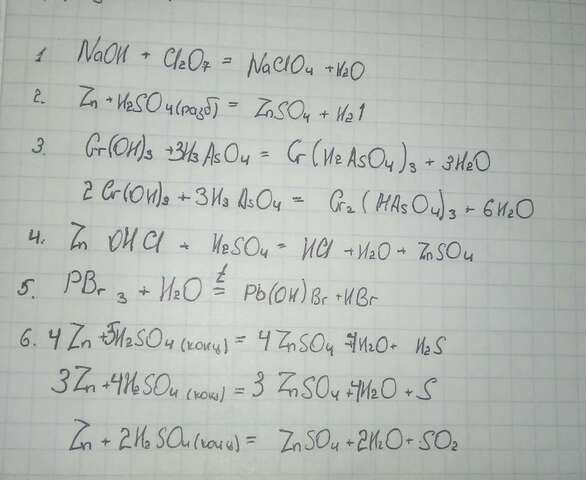 1 NaOH + Cl2O7 = NaClO4 + H2O
2. Zn + H2SO4 (разб) = ZnSO4 + H2↑
3. Cr(OH)3 + 3H3AsO4 = Cr(H2AsO4)3 + 3H2O
2Cr(OH)3 + 3H3AsO4 = Cr2(HAsO4)3 + 6H2O
4. ZnOHCl + H2SO4 = HCl + H2O + ZnSO4
5. PBr3 + H2O =t Pb(OH)Br + HBr
6. 4Zn + 5H2SO4 (конц) = 4ZnSO4 + 4H2O + H2S
3Zn + 4H2SO4 (конц) = 3ZnSO4 + 4H2O + S
Zn + 2H2SO4 (конц) = ZnSO4 + 2H2O + SO2